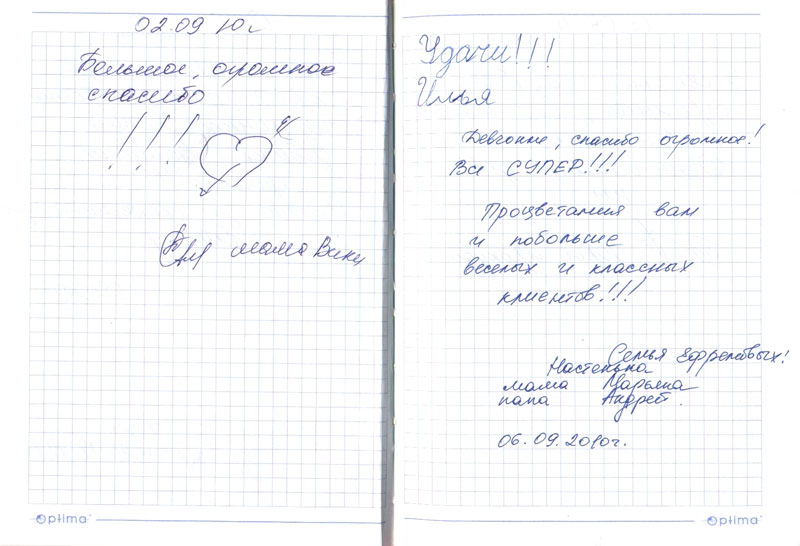 02.09 10г
Большое, огромное
спасибо
!!!
мама Вики
Optima
Удачи!!!
Илья
Девчонки, спасибо огромное!
Все СУПЕР!!!
Процветания вам
и побольше
веселых и классных
клиентов!!!
Семья Ефремовых!
Настенька
мама Марьяна
папа Андрей.
06.09.2010г.
Optima